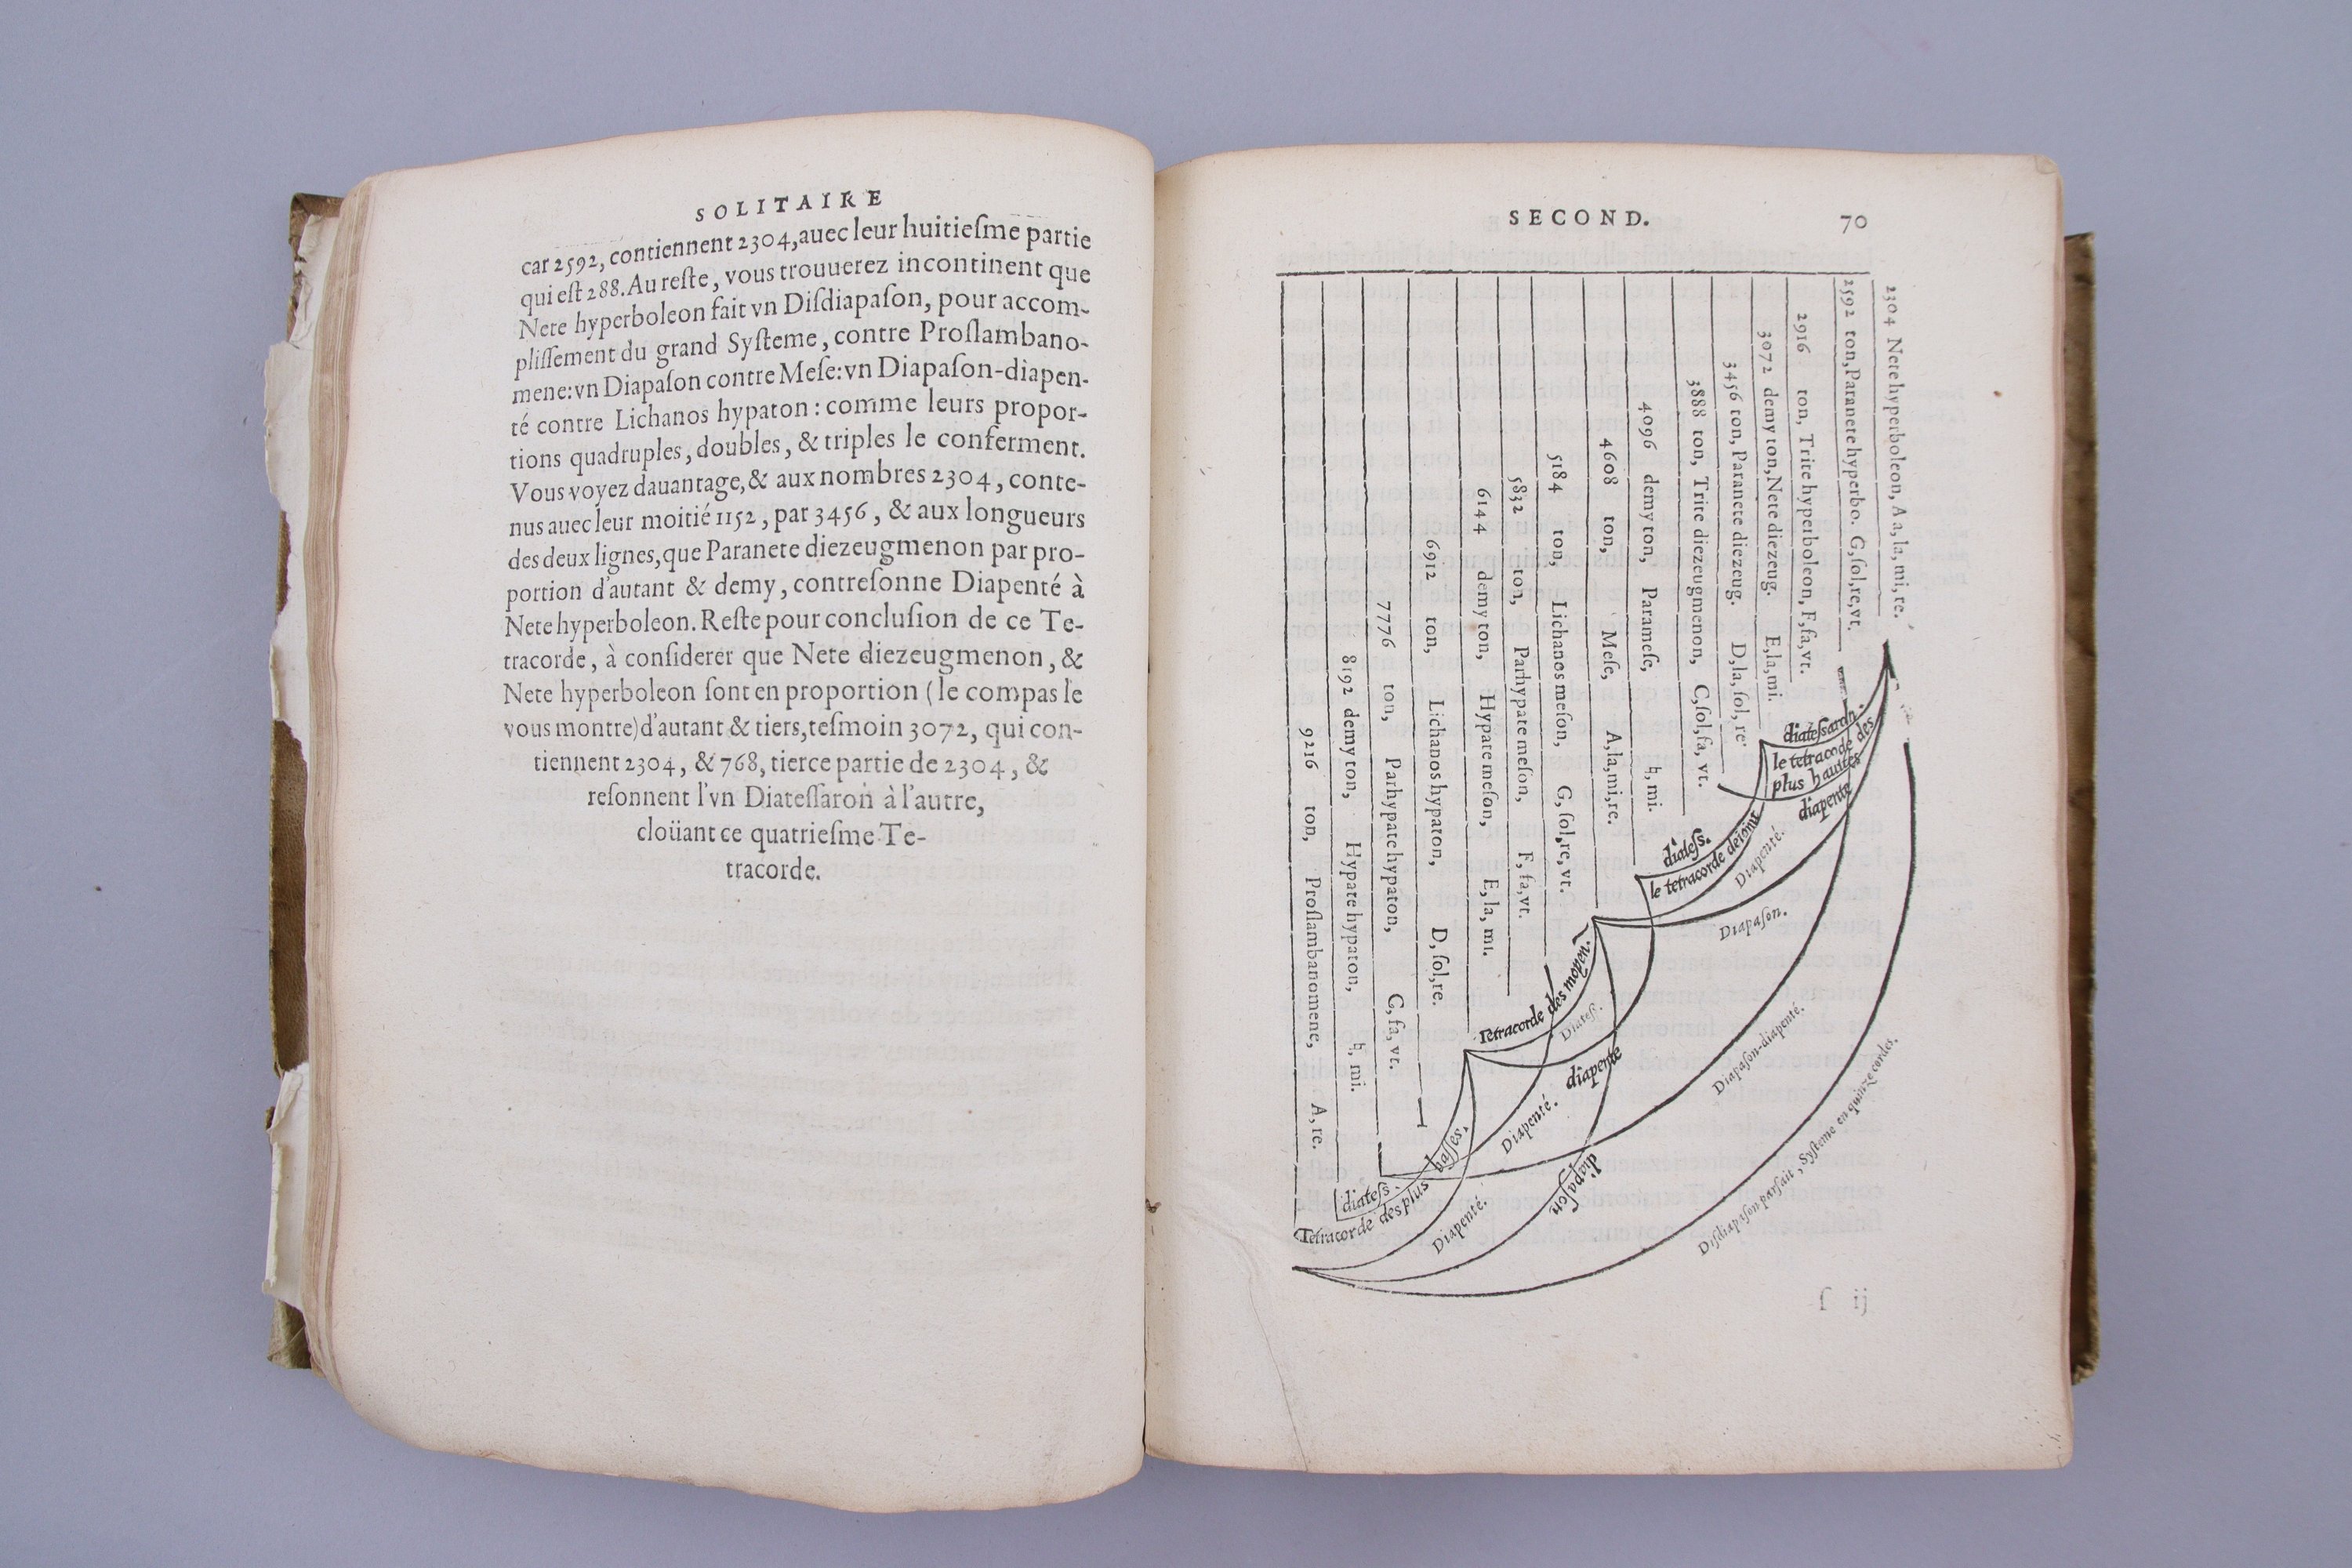 SOLITAIRE
car 2592, contiennent 2304, auec leur huitieſme partie
qui eſt 288. Au reſte, vous trouuerez incontinent que
Nete hyperboleon fait vn Diſdiapaſon, pour accom-
pliſſement du grand Syſteme, contre Proſlambano-
mene: vn Diapaſon contre Meſe: vn Diapaſon-diapen-
té contre Lichanos hypaton: comme leurs propor-
tions quadruples, doubles, & triples le conferment.
Vous voyez dauantage, & aux nombres 2304, conte-
nus auec leur moitié 1152, par 3456, & aux longueurs
des deux lignes, que Paranete diezeugmenon par pro-
portion d'autant & demy, contreſonne Diapenté à
Nete hyperboleon. Reſte pour concluſion de ce Te-
tracorde, à conſiderer que Nete diezeugmenon, &
Nete hyperboleon ſont en proportion (le compas le
vous montre) d'autant & tiers, teſmoin 3072, qui con-
tiennent 2304, & 768, tierce partie de 2304, &
reſonnent l'vn Diateſſaron à l'autre,
cloüant ce quatrieſme Te-
tracorde.
SECOND. 70
2304 Nete hyperboleon, A a, la, mi, re.
2592 ton, Paranete hyperbo. G, ſol, re, vt.
2916 ton, Trite hyperboleon, F, fa, vt.
3072 demy ton, Nete diezeug. E, la, mi.
3456 ton, Paranete diezeug. D, la, ſol, re
3888 ton, Trite diezeugmenon, C, ſol, fa, vt.
4096 demy ton, Parameſe, ♮, mi.
4608 ton, Meſe, A, la, mi, re.
5184 ton, Lichanos meſon, G, ſol, re, vt.
5832 ton, Parhypate meſon, F, fa, vt.
6144 demy ton, Hypate meſon, E, la, mi.
6912 ton, Lichanos hypaton, D, ſol, re.
7776 ton, Parhypate hypaton, C, fa, vt.
8192 demy ton, Hypate hypaton, ♮, mi.
9216 ton, Proſlambanomene, A, re.
diateſſarõ.
le tetracode des
plus hautes
diapente
diateſs.
le tetracorde deioint
Diapenté.
Diapaſon.
Tetracorde des moyen.
Diateſſ.
diapente
Diapaſon-diapenté.
Diapenté.
diapaſon
diateſs.
Tetracorde des plus baſſes.
Diapenté.
Diſdiapaſon parfait, Syſteme en quinze cordes.
ſ ij